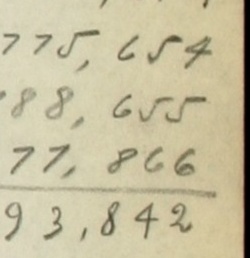 775, 654
88, 655
77, 866
93,842